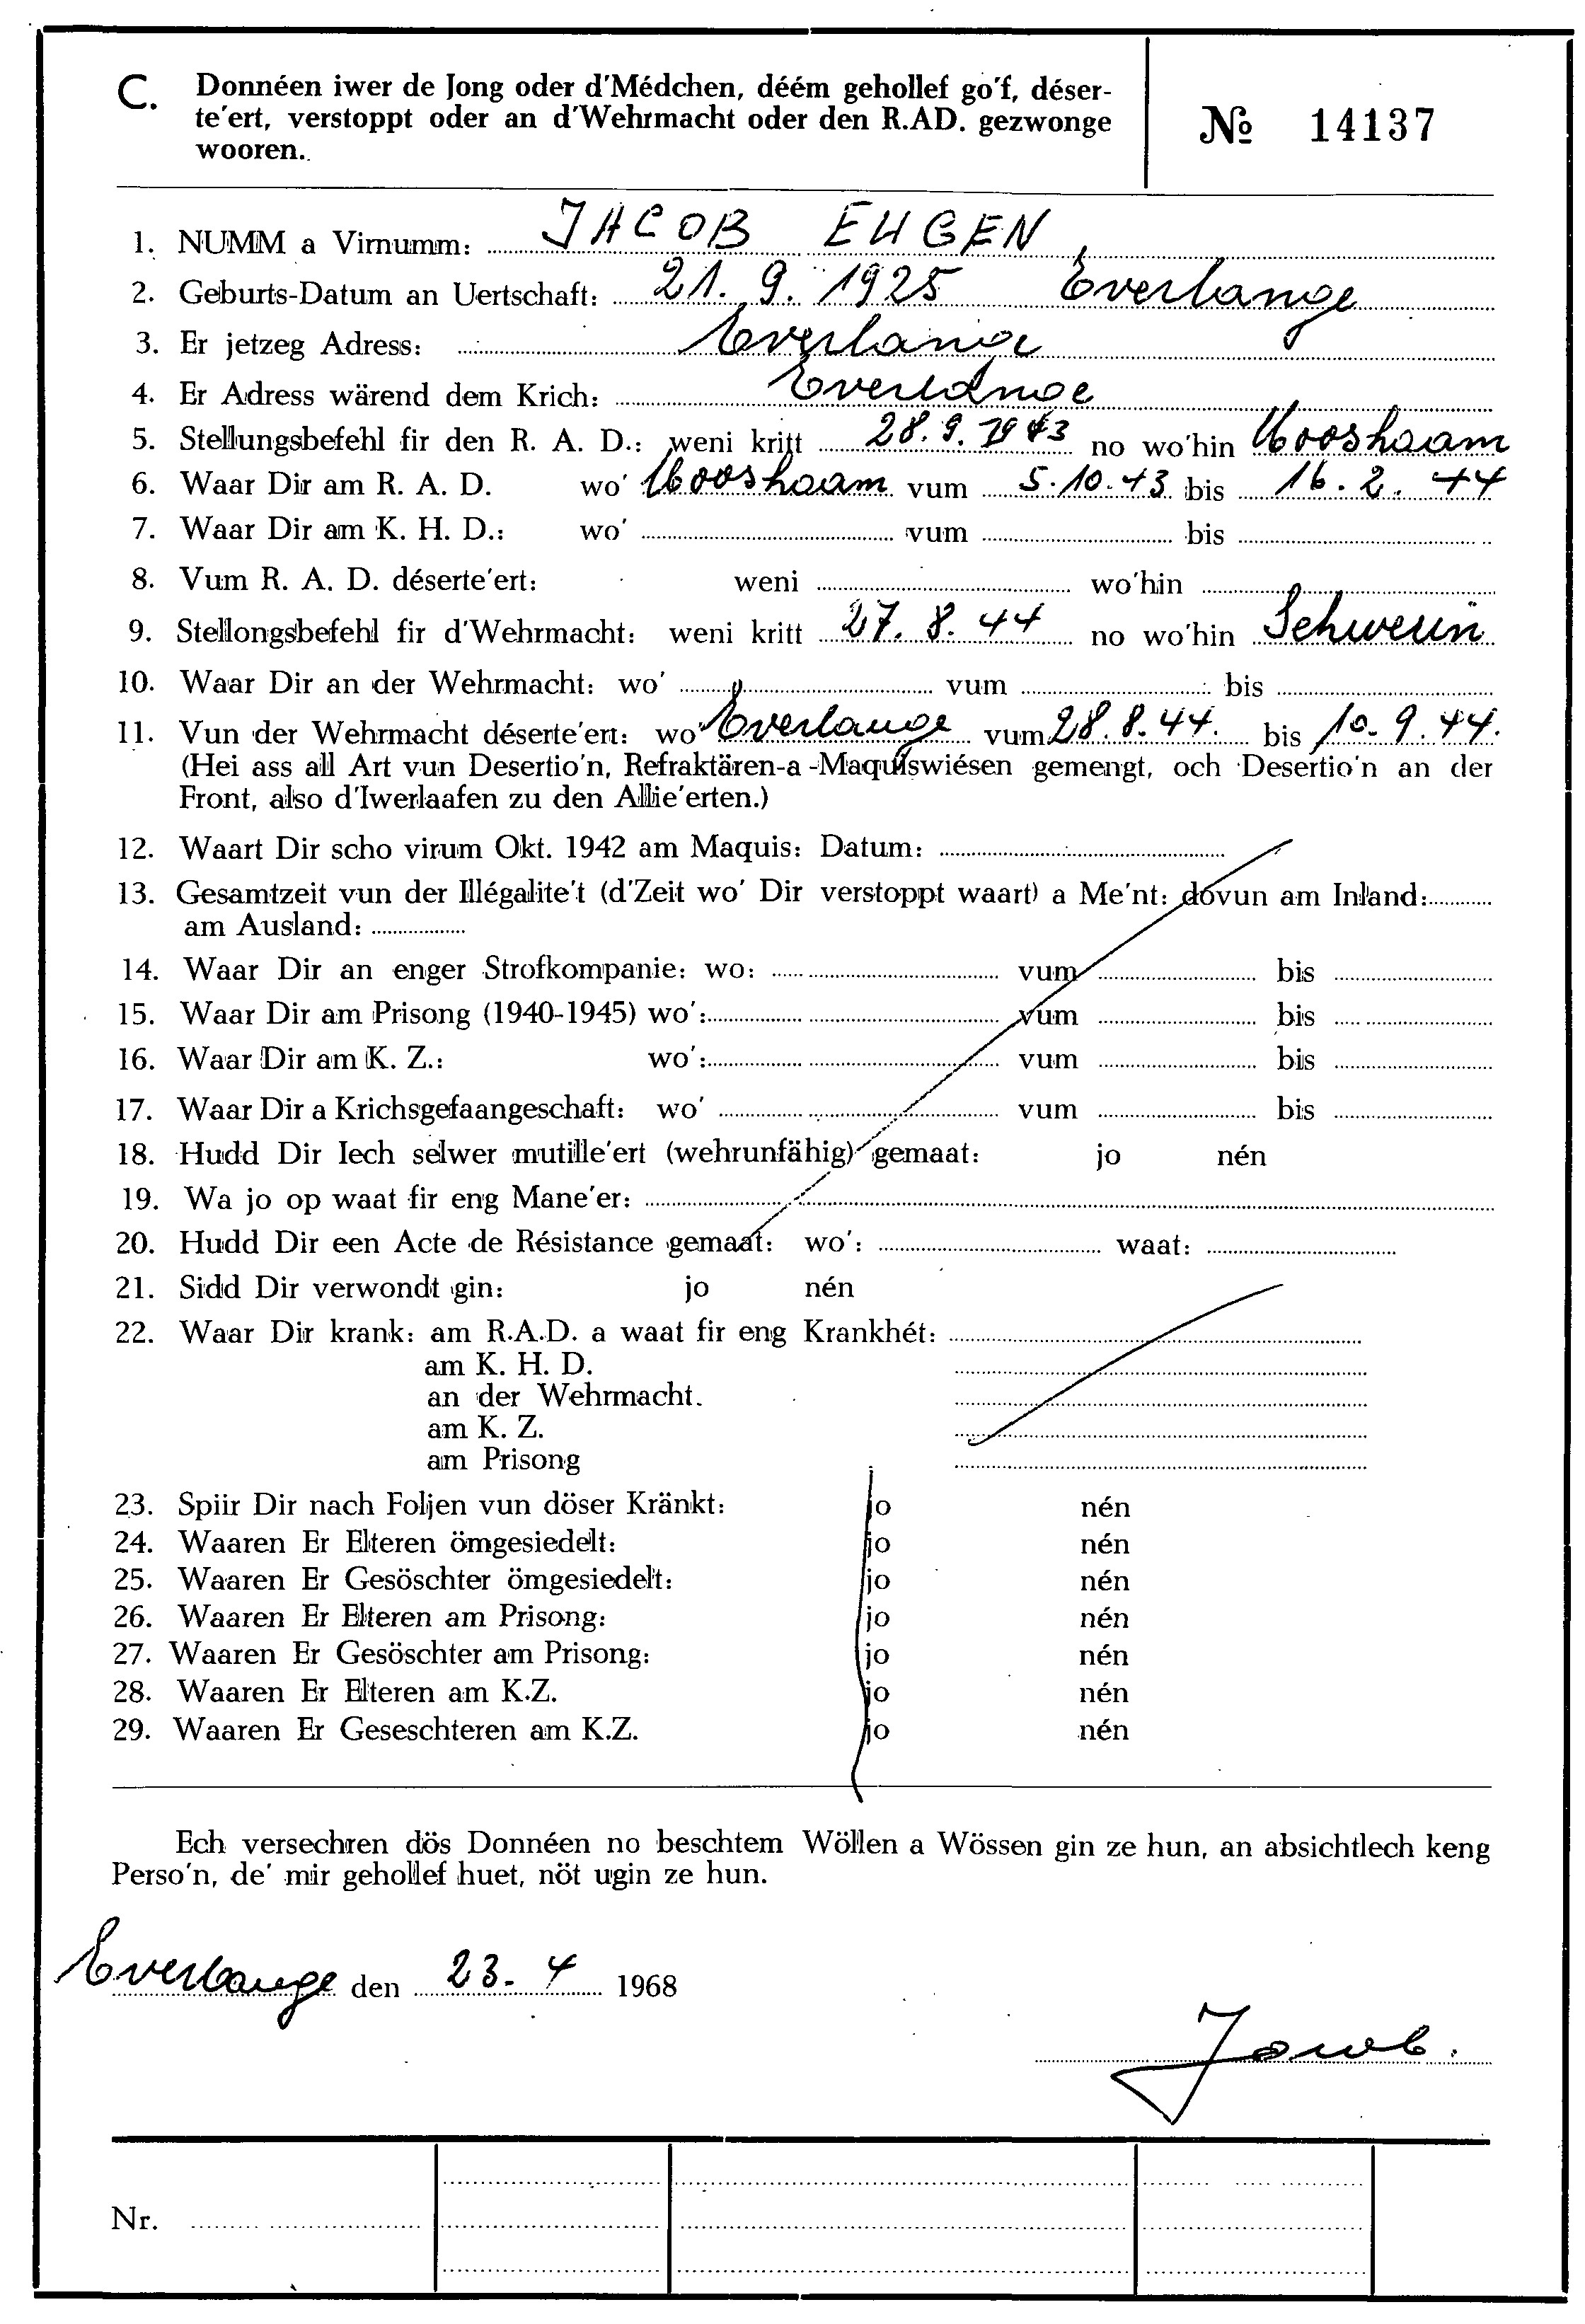 C. Donnéen iwer de Jong oder d'Médchen, déém gehollef go'f, déser-
te'ert, verstoppt oder an d'Wehrmacht oder den R.AD. gezwonge
wooren.
№ 14137
1. NUMM a Virnumm: JACOB EUGEN
2. Geburts-Datum an Uertschaft: 21. 9. 1925 Everlange
3. Er jetzeg Adress: Everlange
4. Er Adress wärend dem Krich: Everlange
5. Stellungsbefehl fir den R. A. D.: weni kritt 28. 9. 1943 no wo'hin Mooshaam
6. Waar Dir am R. A. D. wo' Mooshaam vum 5. 10. 43 bis 16. 2. 44
7. Waar Dir am K. H. D.: wo' vum bis
8. Vum R. A. D. déserte'ert: weni wo'hin
9. Stellongsbefehl fir d'Wehrmacht: weni kritt 27. 8. 44 no wo'hin Schwerin
10. Waar Dir an der Wehrmacht: wo' vum bis
11. Vun der Wehrmacht déserte'ert: wo' Everlange vum 28. 8. 44. bis 10. 9. 44.
(Hei ass all Art vun Desertio'n, Refraktären-a-Maquiswiésen gemengt, och Desertio'n an der
Front, also d'Iwerlaafen zu den Allie'erten.)
12. Waart Dir scho virum Okt. 1942 am Maquis: Datum:
13. Gesamtzeit vun der Illégalite't (d'Zeit wo' Dir verstoppt waart) a Me'nt: dovun am Inland:
am Ausland:
14. Waar Dir an enger Strofkompanie: wo: vum bis
15. Waar Dir am Prisong (1940-1945) wo': vum bis
16. Waar Dir am K. Z.: wo': vum bis
17. Waar Dir a Krichsgefaangeschaft: wo' vum bis
18. Hudd Dir Iech selwer mutille'ert (wehrunfähig) gemaat: jo nén
19. Wa jo op waat fir eng Mane'er:
20. Hudd Dir een Acte de Résistance gemaat: wo': waat:
21. Sidd Dir verwondt gin: jo nén
22. Waar Dir krank: am R.A.D. a waat fir eng Krankhét:
am K. H. D.
an der Wehrmacht.
am K. Z.
am Prisong
23. Spiir Dir nach Foljen vun döser Kränkt: jo nén
24. Waaren Er Elteren ömgesiedelt: jo nén
25. Waaren Er Gesöschter ömgesiedelt: jo nén
26. Waaren Er Elteren am Prisong: jo nén
27. Waaren Er Gesöschter am Prisong: jo nén
28. Waaren Er Elteren am K.Z. jo nén
29. Waaren Er Geseschteren am K.Z. jo nén
Ech versechren dös Donnéen no beschtem Wöllen a Wössen gin ze hun, an absichtlech keng
Perso'n, de' mir gehollef huet, nöt ugin ze hun.
Everlange den 23. 4 1968
Jacob.
Nr.